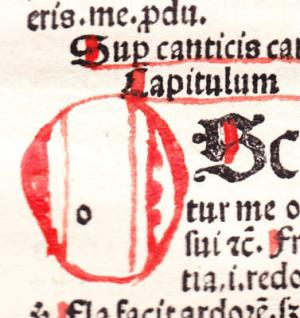 eris.me.ꝓdu.
Sup canticis can
Capitulum
O Sc
tur me o
sui ⁊c̄. Fr
tia,i.redo
Ela facit ardorē.